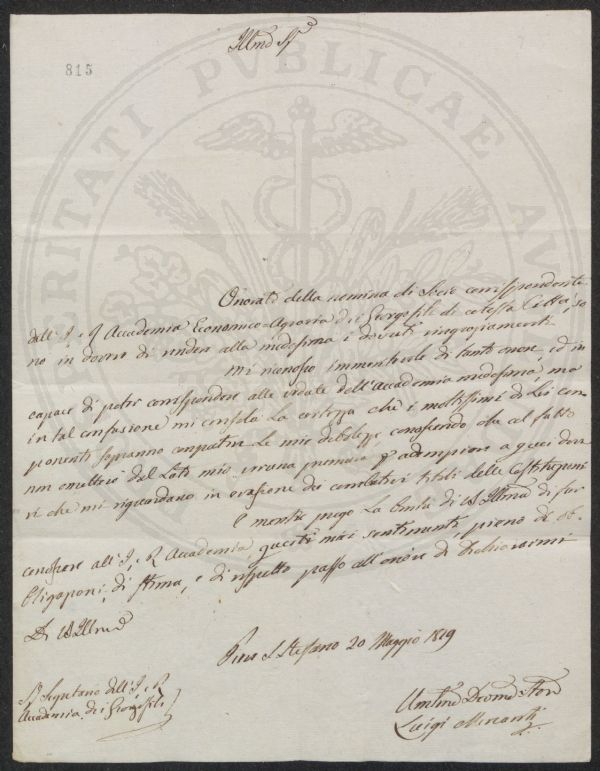 Illmo Sr
815
Onorato della nomina di Socio corrispondente
dell' I. e R. Accademia Economico-Agraria dei Georgofili di cotesta Città, so
no in dovere di rendere alla medesima i dovuti ringraziamenti.
Mi riconosco immeritevole di tanto onore, ed in
capace di poter corrispondere alle vedute dell' Accademia medesima, ma
in tal confusione mi consola la certezza che i moltissimi di Lei com
ponenti sapranno compatire le mie debolezze
non ometterò dal Lato mio veruna premura p adempiere a quei dove
ri che mi riguardano in
E mentre prego la Bontà di VS Illma di far
conoscere all' I. e R. Accademia questi miei sentimenti, pieno di ob
bligazioni, di stima, e di rispetto passo all' onore di dichiararmi
Di VS Illma
Pieve S. Stefano 20 Maggio 1829
Sr Segretario dell' I. e R.
Accademia dei Georgofili
Umilmo Devmo Servo
Luigi